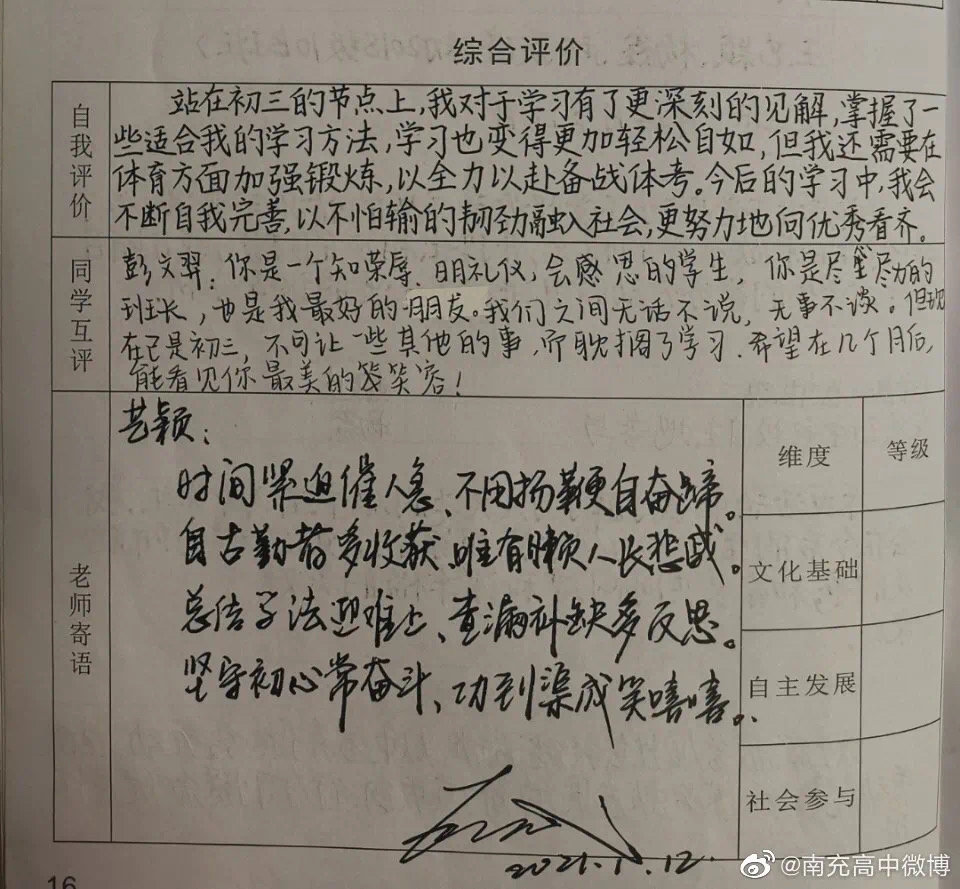 综合评价
自我评价
站在初三的节点上,我对于学习有了更深刻的见解,掌握了一
些适合我的学习方法,学习也变得更加轻松自如,但我还需要在
体育方面加强锻炼,以全力以赴备战体考。今后的学习中,我会
不断自我完善,以不怕输的韧劲融入社会,更努力地向优秀看齐。
同学互评
彭文羿:你是一个知荣辱、明礼仪,会感恩的学生,你是尽尽力的
班长,也是我最好的朋友。我们之间无话不说,无事不谈。但现
在已是初三,不可让一些其他的事,而耽搁了学习.希望在几个月后,
能看见你最美的笑容!
老师寄语
艺颖:
时间紧迫催人急、不用扬鞭自奋蹄。
自古勤者多收获、唯有懒人长悲戚。
总结学法迎难上、查漏补缺多反思。
坚守初心常奋斗、功到渠成笑嘻嘻。
2021.1.12.
维度
等级
文化基础
自主发展
社会参与
16
@南充高中微博